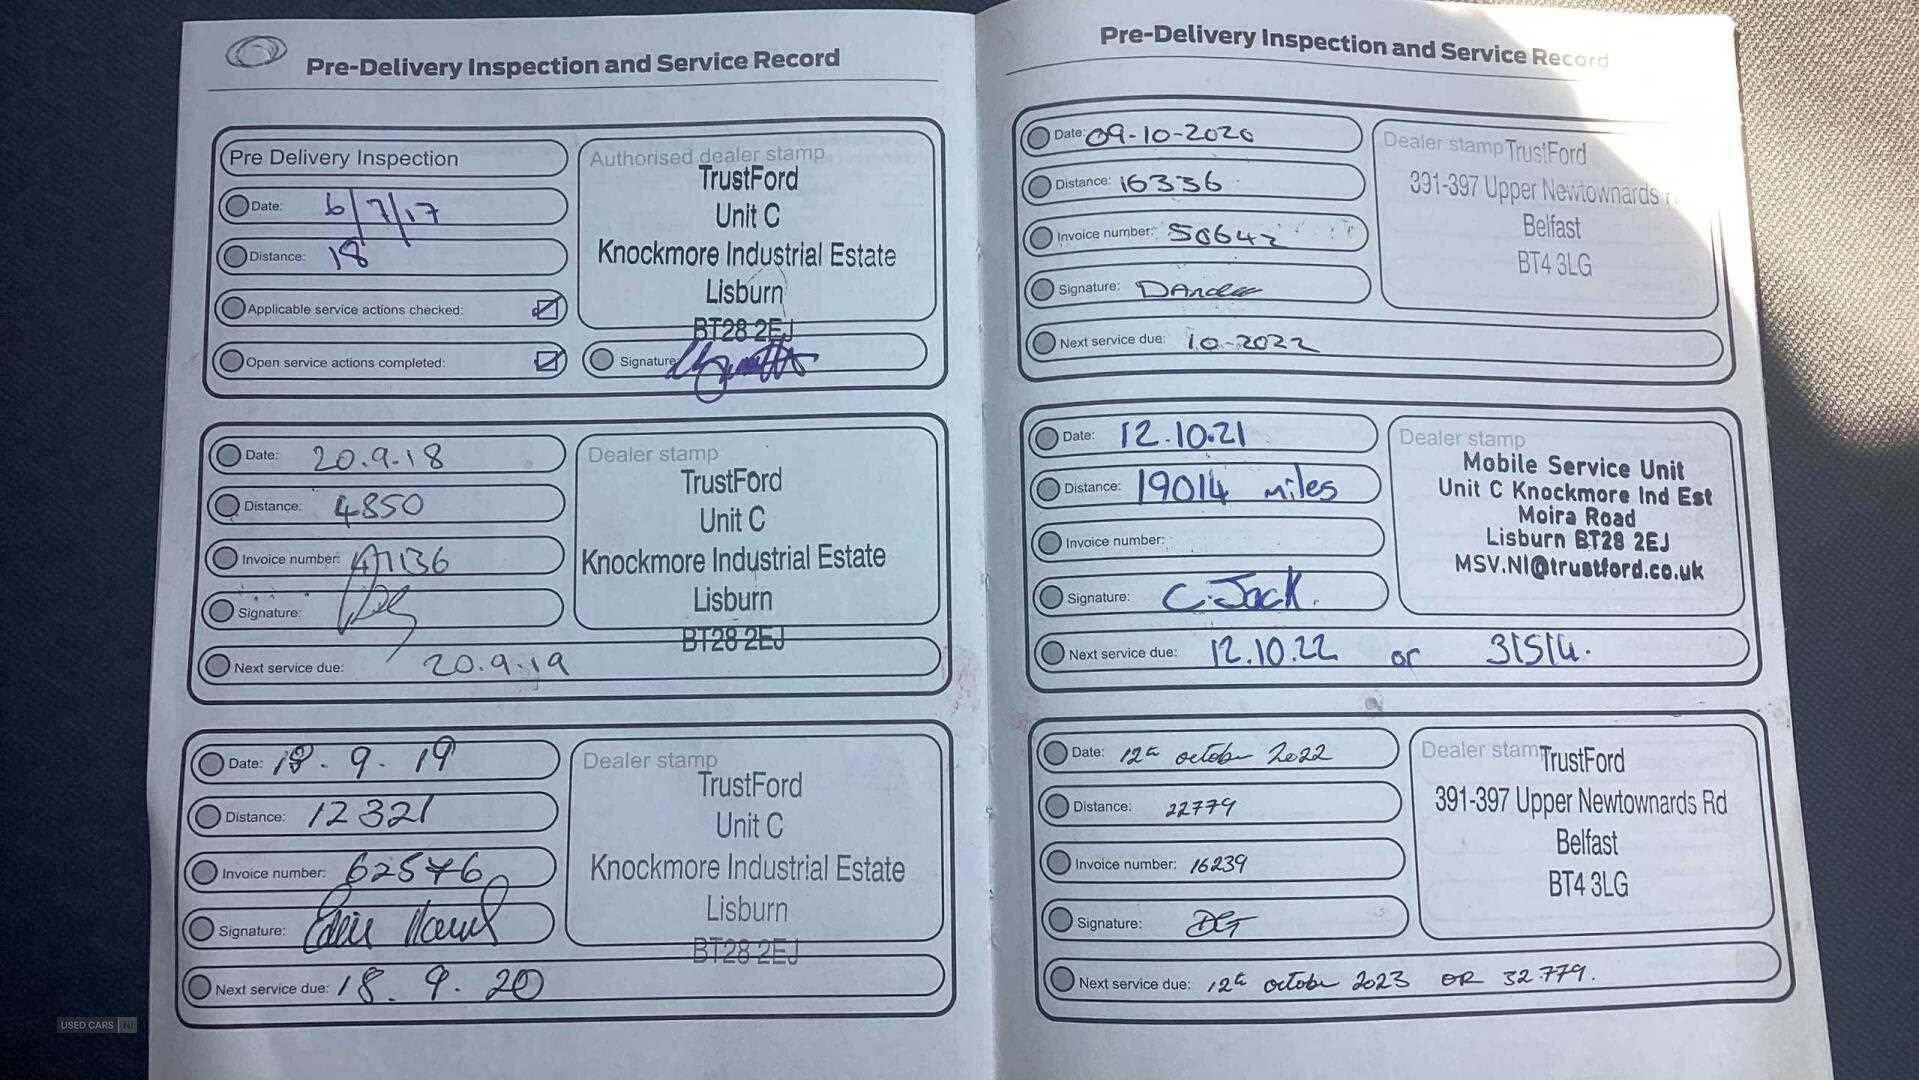 Pre-Delivery Inspection and Service Record
Pre Delivery Inspection
Date: 6/7/17
Distance: 18
Applicable service actions checked:
Open service actions completed:
Authorised dealer stamp
TrustFord
Unit C
Knockmore Industrial Estate
Lisburn
BT28 2EJ
Signature
Date: 20.9.18
Distance: 4850
Invoice number: 47136
Signature:
Next service due: 20.9.19
Dealer stamp
TrustFord
Unit C
Knockmore Industrial Estate
Lisburn
BT28 2EJ
Date: 18.9.19
Distance: 12321
Invoice number: 62576
Signature:
Next service due: 18.9.20
Dealer stamp
TrustFord
Unit C
Knockmore Industrial Estate
Lisburn
BT28 2EJ
Pre-Delivery Inspection and Service Record
Date: 09-10-2020
Distance: 16336
Invoice number: 50642
Signature:
Next service due: 10-2022
Dealer stamp TrustFord
391-397 Upper Newtownards
Belfast
BT4 3LG
Date: 12.10.21
Distance: 19014 miles
Invoice number:
Signature: C.Jack.
Next service due: 12.10.22 or 31514.
Dealer stamp
Mobile Service Unit
Unit C Knockmore Ind Est
Moira Road
Lisburn BT28 2EJ
MSV.NI@trustford.co.uk
Date: 12th october 2022
Distance: 22779
Invoice number: 16239
Signature:
Next service due: 12th october 2023 OR 32779.
Dealer stam TrustFord
391-397 Upper Newtownards Rd
Belfast
BT4 3LG
USED CARS NI